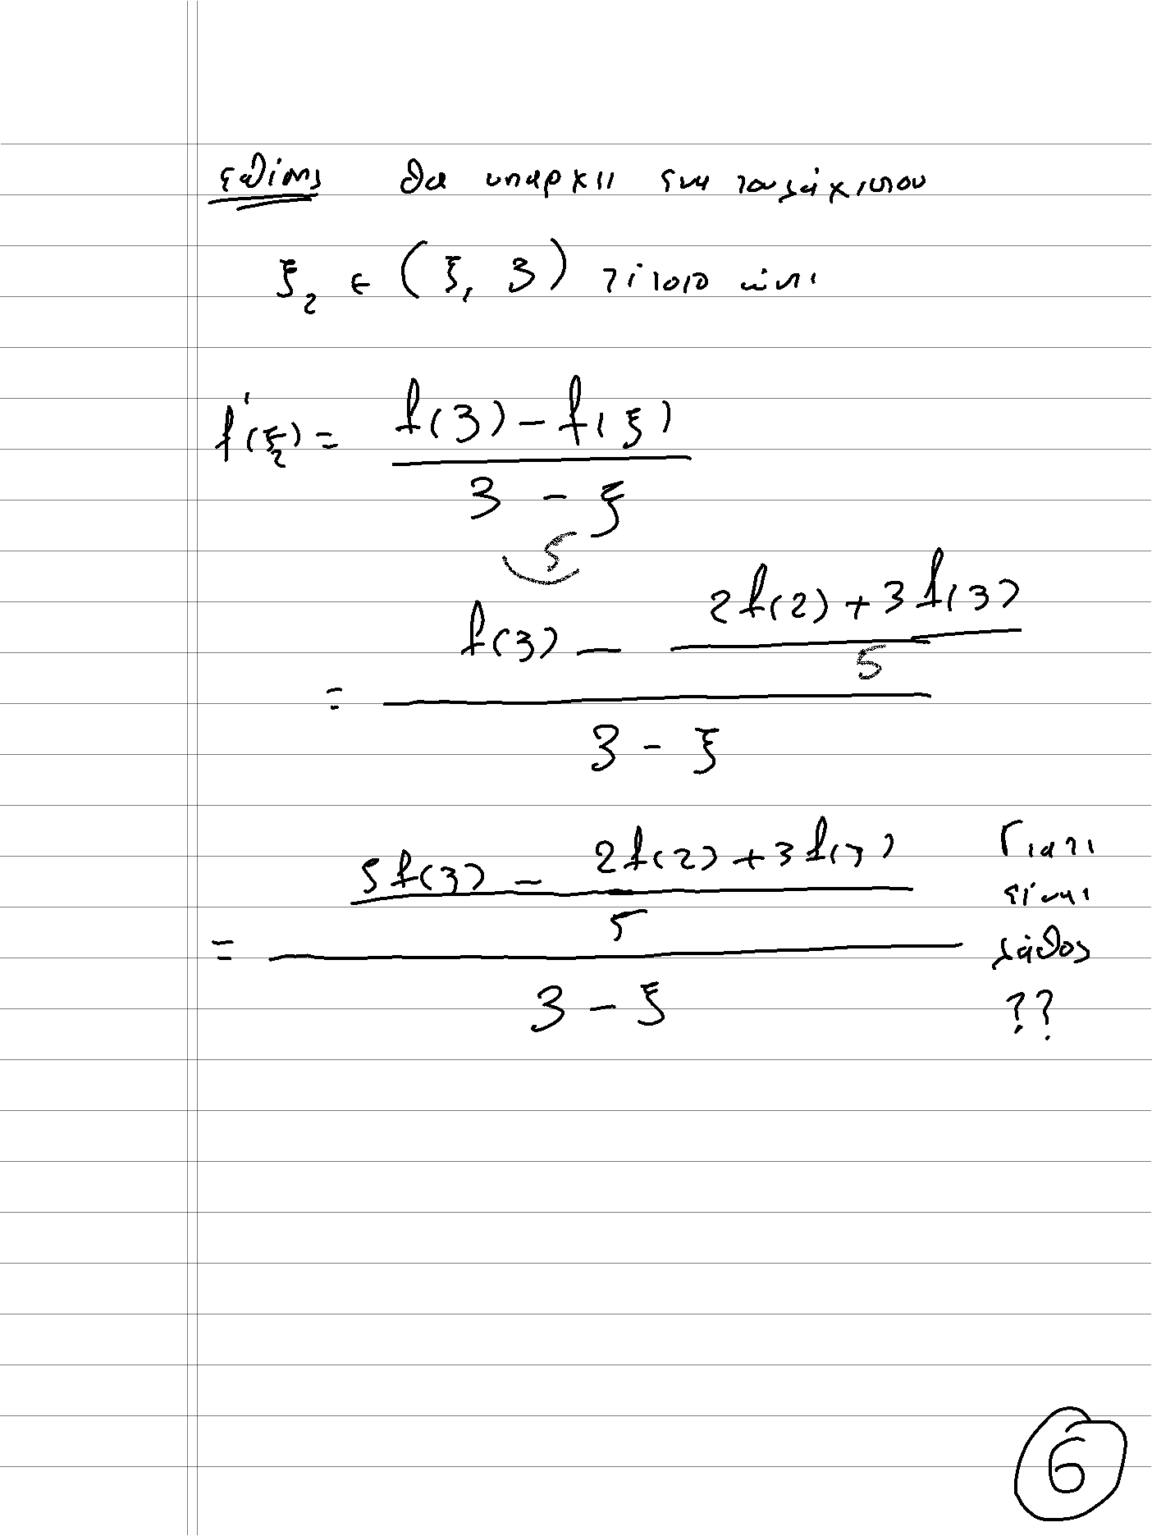 επίσης θα υπάρχει ένα τουλάχιστον
ξ₂ ∈ (ξ, 3) τέτοιο ώστε
f'(ξ₂) = \frac{f(3) - f(ξ)}{3 - ξ}
5
= \frac{f(3) - \frac{2f(2) + 3f(3)}{5}}{3 - ξ}
= \frac{\frac{5f(3) - 2f(2) + 3f(3)}{5}}{3 - ξ}
Γιατι
είναι
λάθος
??
6